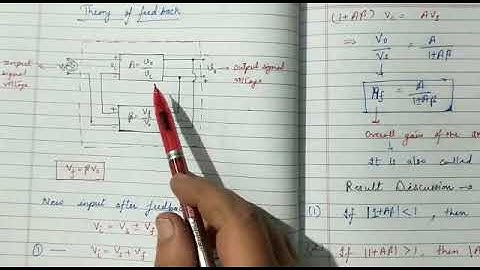 Theory of feedback
Input
signal
voltage
A = V₀/Vᵢ
V₀ → output signal
voltage
β = Vf/V₀
Vf = βV₀
Now input after feedback
Vᵢ = Vs ± Vf
① — Vᵢ = Vs + Vf
(1+Aβ) V₀ = AVs
⇒ V₀/Vs = A/1±Aβ
Af = A/1±Aβ
Overall gain of the
It is also called
Result Discussion →
(1) If |1+Aβ| < 1, then
If |1+Aβ| > 1, then